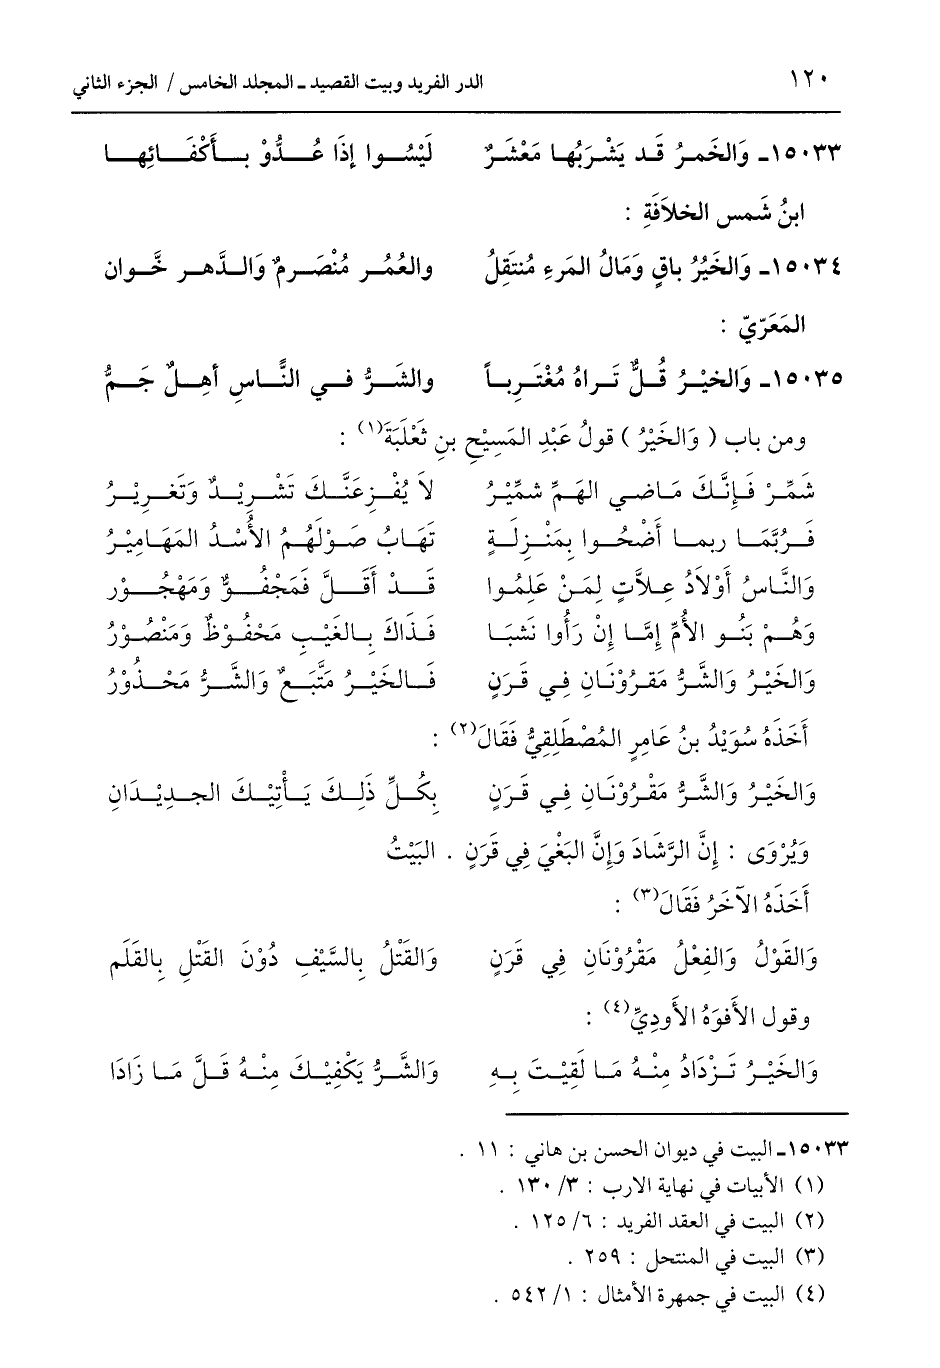 ١٢٠ الدر الفريد وبيت القصيد ـ المجلد الخامس / الجزء الثاني
١٥٠٣٣ـ وَالخَمرُ قَد يَشْرَبُها مَعْشَرٌ لَيْسُوا إذَا عُدُّوْ بأَكْفَائِها
ابنُ شَمس الخلاَفَةِ :
١٥٠٣٤ـ وَالخَيُرُ باقٍ وَمَالُ المَرءِ مُنتَقِلُ والعُمُر مُنْصَرمٌ وَالدَّهر خَّوان
المَعَرّيّ :
١٥٠٣٥ـ وَالخيْرُ قُلٌّ تَراهُ مُغْتَرِباً والشَرُّ في النَّاسِ أهِلٌ جَمُّ
ومن باب ( وَالخَيْرُ ) قولُ عَبْدِ المَسِيْحِ بنِ ثَعْلَبَةَ(١) :
شَمِّرْ فَإِنَّكَ مَاضي الهَمِّ شمِّيْرُ لاَ يُفْزِعَنَّكَ تَشْرِيْدٌ وَتَغرِيْرُ
فَرُبَّمَا ربما أَضْحُوا بِمَنْزِلَةٍ تَهَابُ صَوْلَهُمُ الأُسْدُ المَهَامِيْرُ
وَالنَّاسُ أوْلاَدُ عِلاَّتٍ لِمَنْ عَلِمُوا قَدْ أَقَلَّ فَمَجْفُوٌّ وَمَهْجُوْر
وَهُمْ بَنُو الأُمِّ إمَّا إنْ رَأُوا نَشبَا فَذَاكَ بِالغَيْبِ مَحْفُوْظٌ وَمَنْصُوْرُ
وَالخَيْرُ وَالشَّرُّ مَقرُوْنَانِ فِي قَرَنِ فَالخَيْرُ مَتَّبَعٌ وَالشَّرُّ مَحْذُوْرُ
أَخَذَهُ سُوَيْدُ بنُ عَامِرٍ المُصْطَلِقِيُّ فَقَالَ(٢) :
وَالخَيْرُ وَالشَّرُّ مَقْرُوْنَانِ فِي قَرَنٍ بِكُلِّ ذَلِكَ يَأْتِيْكَ الجدِيْدَانِ
وَيُرْوَى : إنَّ الرَّشَادَ وَإنَّ البَغْيَ فِي قَرَنٍ . البَيْتُ
أَخَذَهُ الآخَرُ فَقَالَ(٣) :
وَالقَوْلُ وَالفِعْلُ مَقْرُوْنَانِ فِي قَرَنٍ وَالقَتْلُ بِالسَّيْفِ دُوْنَ القَتْلِ بِالقَلَم
وقول الأَفوَهُ الأَودِيِّ(٤) :
وَالخَيْرُ تَزْدَادُ مِنْهُ مَا لَقِيْتَ بِهِ وَالشَّرُّ يَكْفِيْكَ مِنْهُ قَلَّ مَا زَادَا
١٥٠٣٣ـ البيت في ديوان الحسن بن هاني : ١١ .
(١) الأبيات في نهاية الارب : ٣/ ١٣٠ .
(٢) البيت في العقد الفريد : ٦/ ١٢٥ .
(٣) البيت في المنتحل : ٢٥٩ .
(٤) البيت في جمهرة الأمثال : ١/ ٥٤٢ .